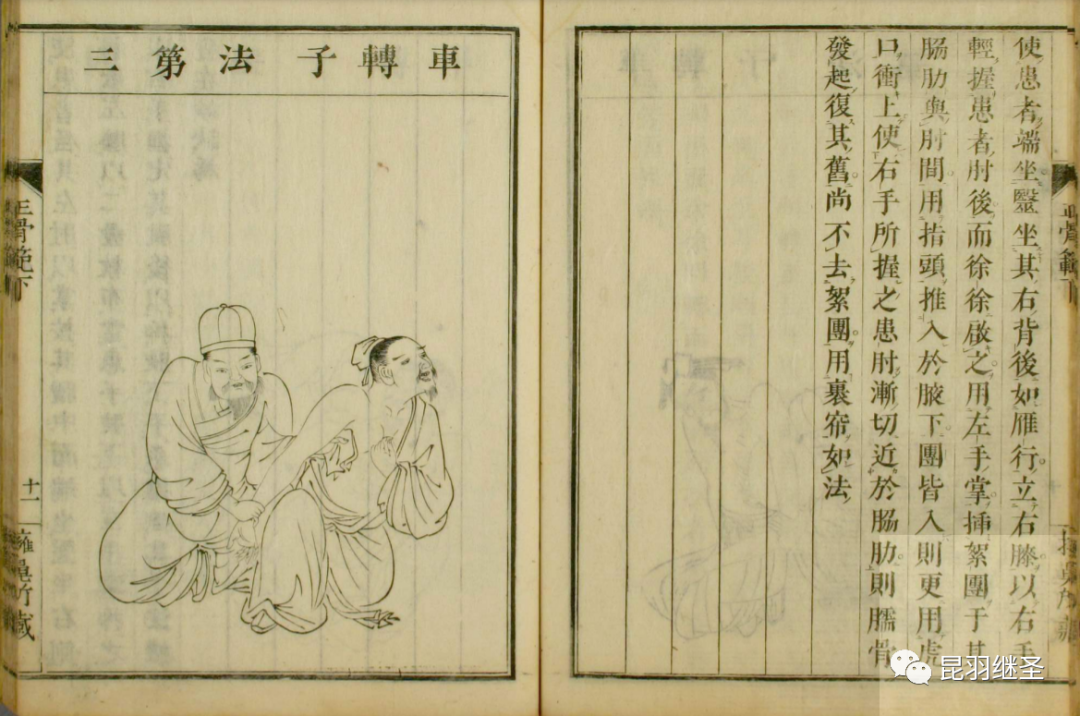 使患者端坐毉坐其右背後如雁行立右膝以右手
輕握患者肘後而徐徐啟之用左手掌揷絮團于其
脇肋與肘間用指頭推入於腋下團皆入則更用虎
口衝上使右手所握之患肘漸切近於脇肋則臑骨
發起復其舊尚不去絮團用裹帘如法
車轉子法第三
正骨範下
十一
昆羽继圣